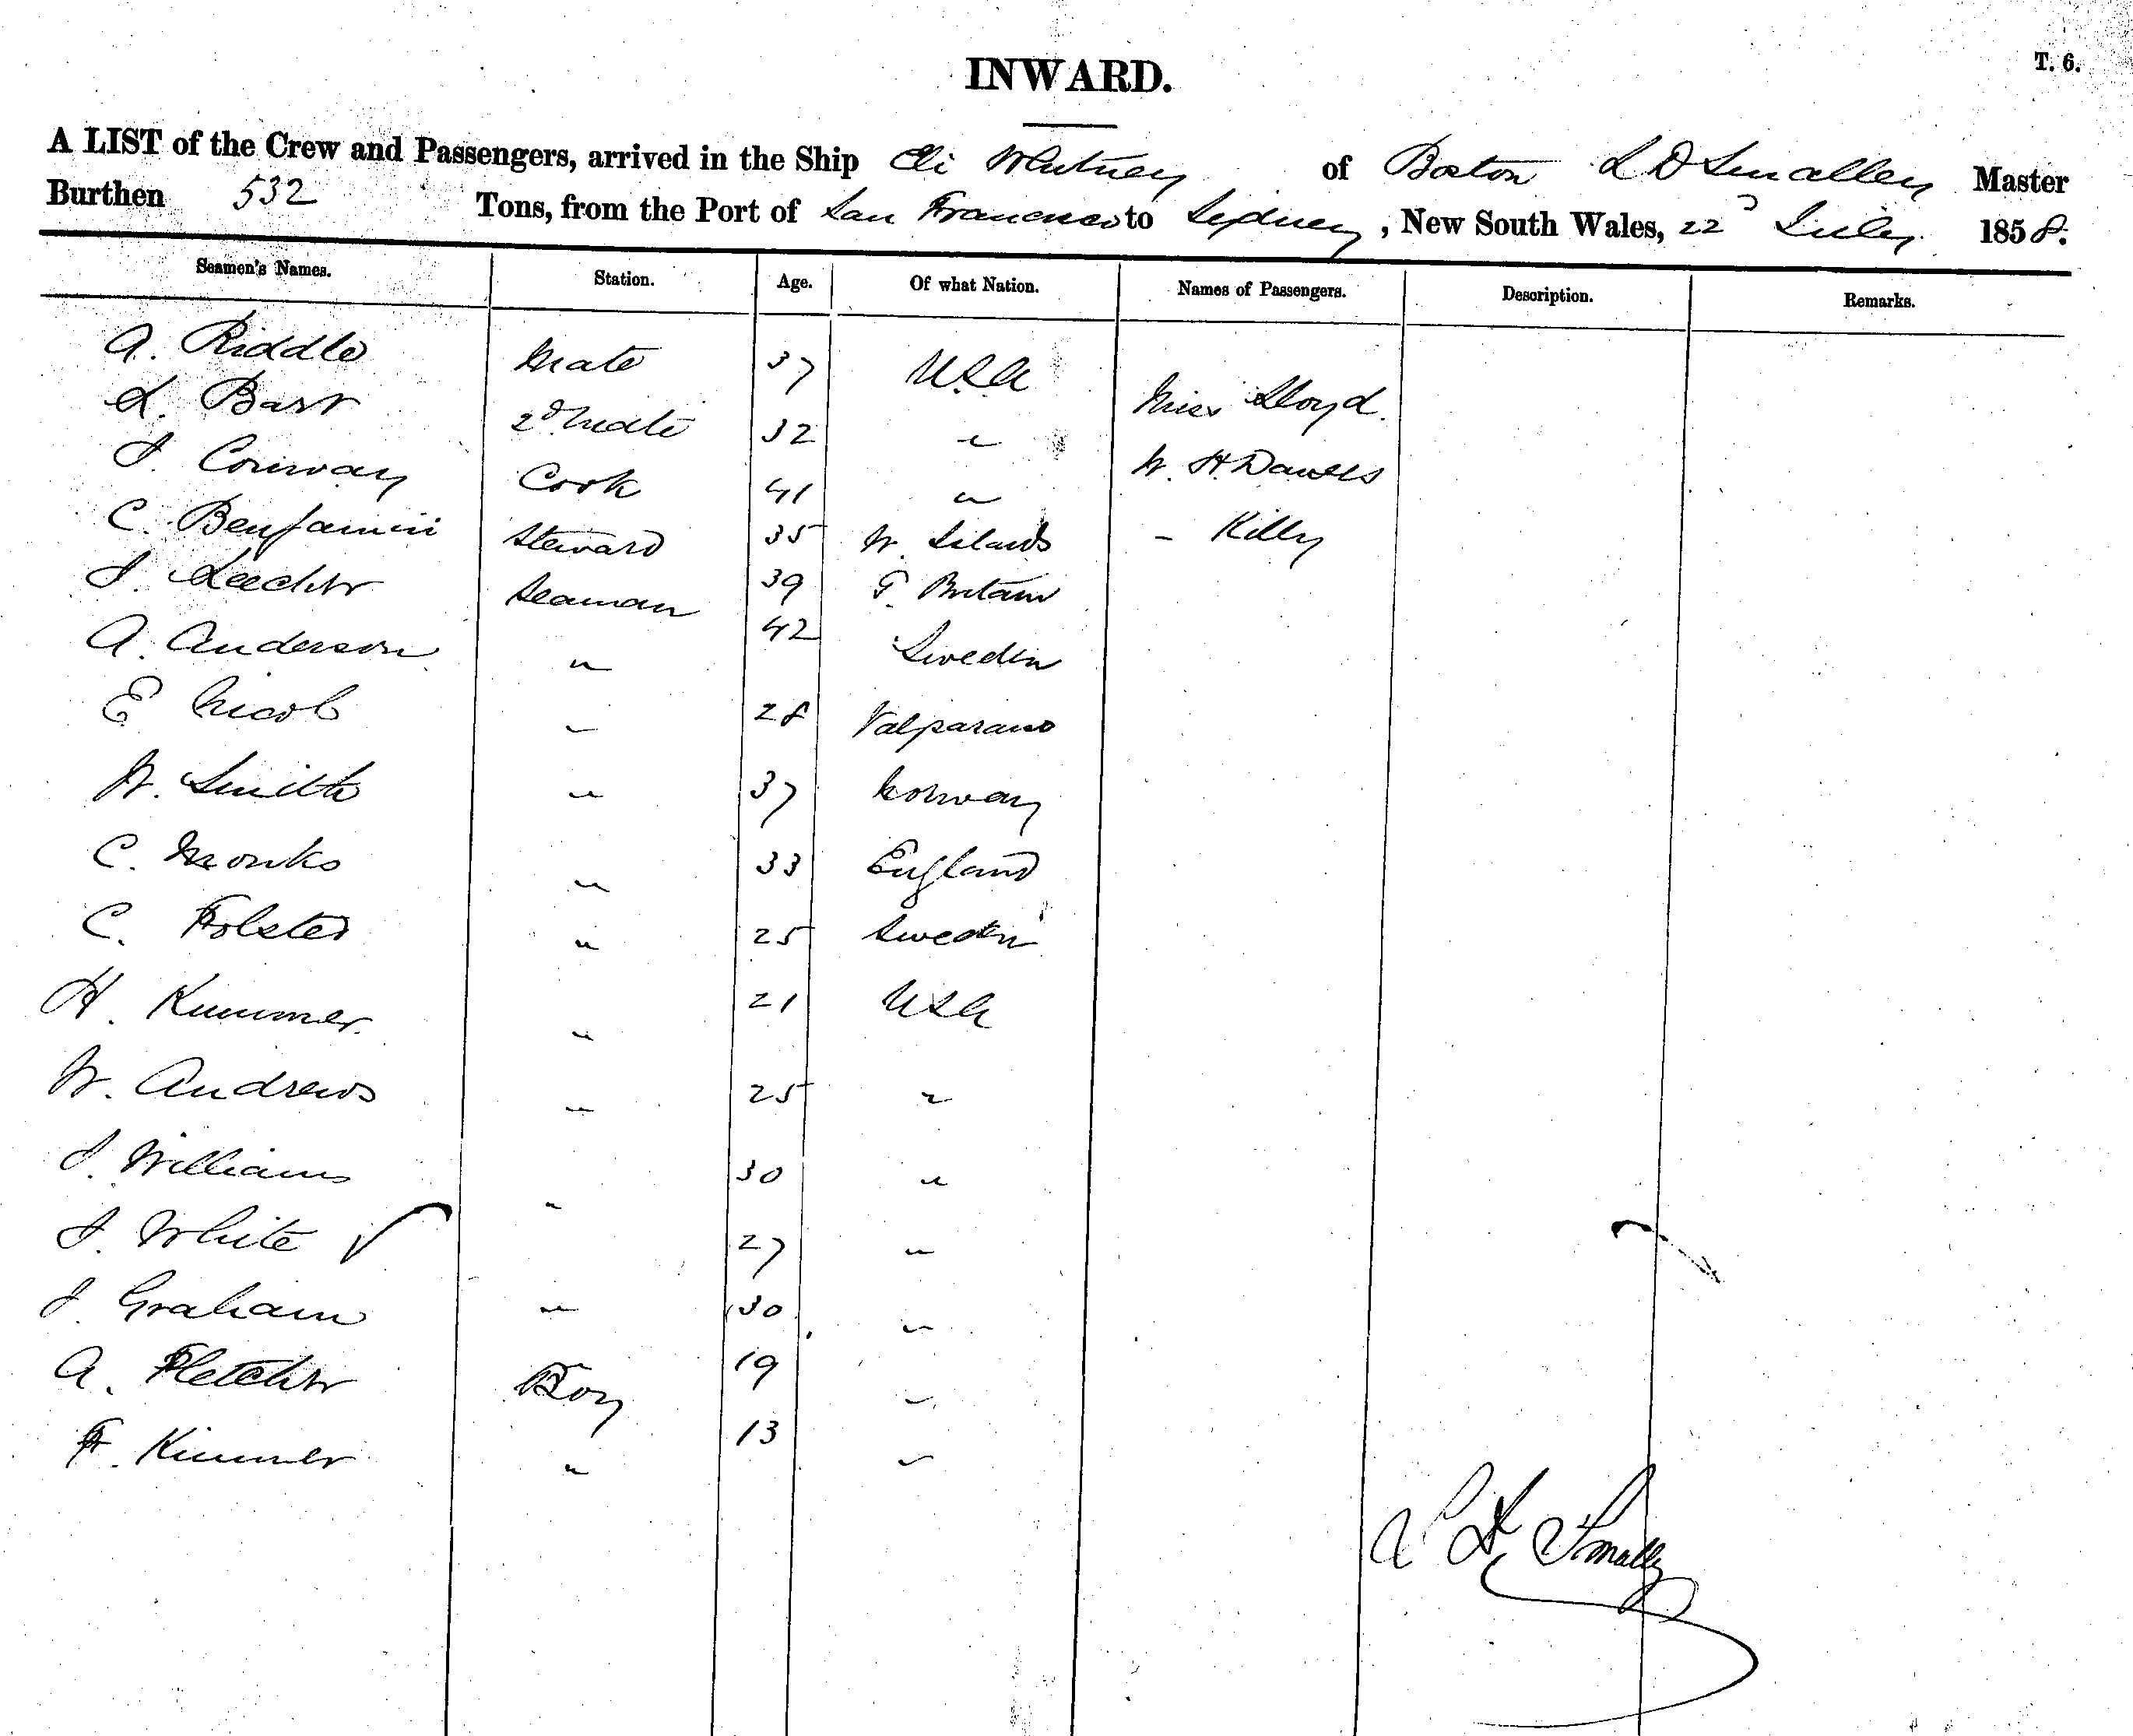 INWARD.
T. 6.
A LIST of the Crew and Passengers, arrived in the Ship Eli Whitney of Boston L D Smalley Master
Burthen 532 Tons, from the Port of San Francisco to Sydney, New South Wales, 22d July 1858.
Seamen's Names. Station. Age. Of what Nation. Names of Passengers. Description. Remarks.
A. Riddle Mate 37 USA Miss Lloyd.
L. Bass 2d Mate 32 "
J. Conway Cook 41 " W. H. Dawes
C. Benjamin Steward 35 W. Islands - Killy
J. Leecher Seaman 39 G. Britain
A. Anderson " 42 Sweden
E Nicol " 28 Valparaiso
W. Smith " 37 Norway
C. Monks " 33 England
C. Folsted " 25 Sweden
H. Kummer " 21 USA
W. Andrews " 25 "
J. Williams " 30 "
J. White " 27 "
J. Graham " 30 "
A. Fletcher Boy 19 "
F. Kimmer " 13 "
Smalley